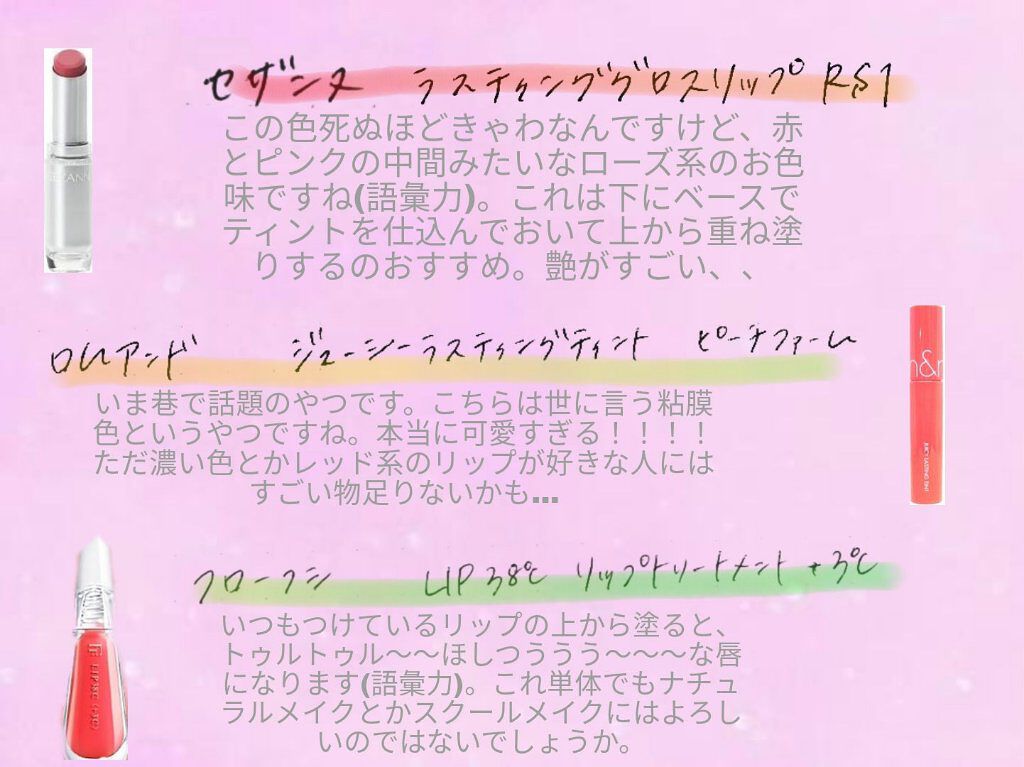 セザンヌ ラスティンググロスリップ RS1
この色死ぬほどきゃわなんですけど、赤
とピンクの中間みたいなローズ系のお色
味ですね(語彙力)。これは下にベースで
ティントを仕込んでおいて上から重ね塗
りするのおすすめ。艶がすごい、、
ロムアンド ジューシーラスティングティント ピーチファーム
いま巷で話題のやつです。こちらは世に言う粘膜
色というやつですね。本当に可愛すぎる！！！！
ただ濃い色とかレッド系のリップが好きな人には
すごい物足りないかも...
n&r
JUICY LASTING TINT
フローフシ LIP38℃ リップトリートメント +3℃
いつもつけているリップの上から塗ると、
トゥルトゥル〜〜ほしつううう〜〜〜な唇
になります(語彙力)。これ単体でもナチュ
ラルメイクとかスクールメイクにはよろし
いのではないでしょうか。